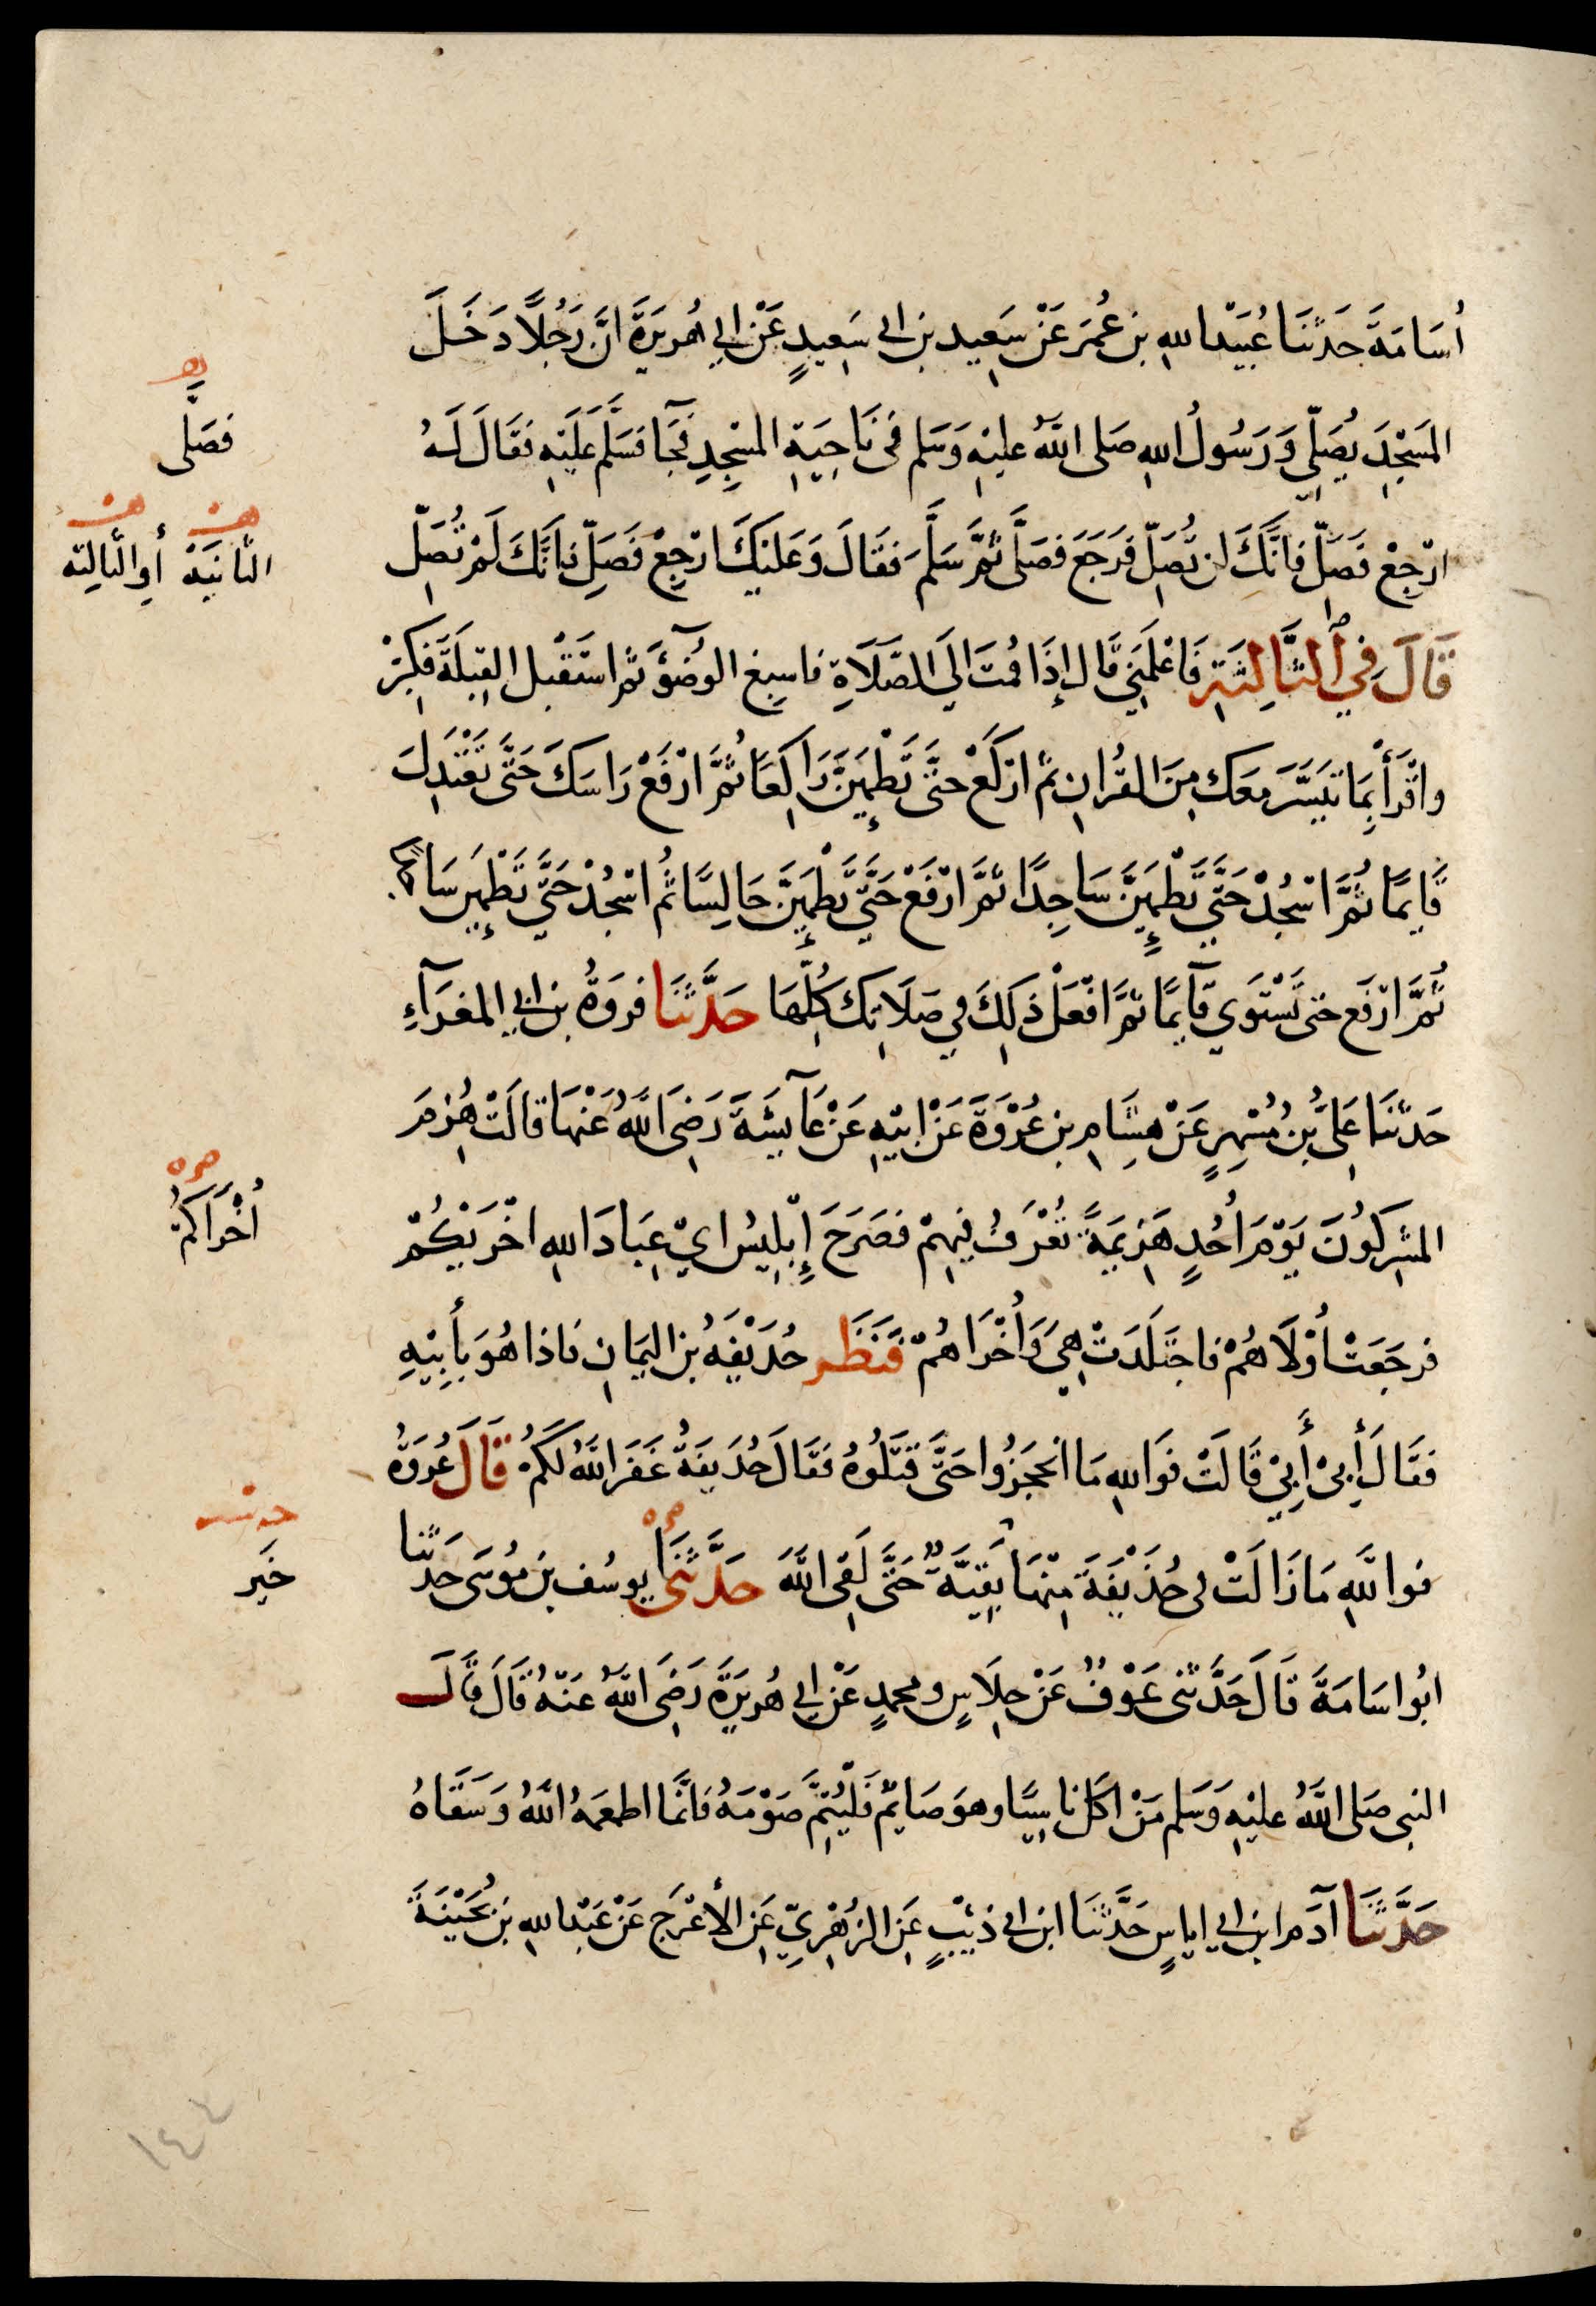 أُسَامَةَ حَدَّثَنَا عُبَيْدُ اللهِ بن عُمَرَ عَنْ سَعِيد بن ابي سَعِيدٍ عَنْ ابِي هُرَيرَةَ انَّ رَجُلًا دَخَلَ
المَسْجِدَ يُصَلِّي وَرَسُولُ اللهِ صَلى اللَّهُ عليْهِ وَسَلم في نَاحِيَةِ المسْجِدِ فَجَآ فَسَلَّمَ عَلَيْهِ فَقَالَ لَهُ
ارْجِعْ فَصَلِّ فَانَّكَ لن تُصَلِّ فَرَجَعَ فَصَلَّى ثُمَّ سَلَّمَ فَقَالَ وَعَلَيْكَ ارْجِعْ فَصَلِّ فَانَّكَ لَمْ تُصَلِّ
قَالَ فِي الثَّالِثَةِ فَاعْلِمْنِي قَال إذَا قُمتَ الَي الصَّلَاةِ فاسبِغ الوُضُؤَ ثمَّ استَقْبل القِبلَةَ فكبِّرْ
واقْرَأْ بِمَا تَيَسَّرَ مَعَكَ مِنَ القُرْانِ ثمَّ ارْكَعْ حتَّى تَطْمَئِنَّ رَاكِعًا ثُمَّ ارْفَعْ رَاسَكَ حَتَّى تَعْتَدِلَ
قَايمًا ثُمَّ اسْجُدْ حَتَّى تَطْمَئِنَّ سَاجِدًا ثمَّ ارْفَعْ حَتَّي تَطْمَئِنَّ جَالِسًا ثمُ اسْجُدْ حَتَّي تَطْمَئِن سَا
ثُمَّ ارْفَع حتى تَسْتَوي قآيمًا ثمَّ افْعَلْ ذَلِكَ في صَلَاتِك كُلِّهَا حَدَّثَنَا فروَةُ بن ابي المغرَآءِ
حَدّثنَا عَليُّ بنُ مُسْهِرٍ عَنْ هِشَامِ بنِ عُرْوَةَ عَنْ ابيْهِ عَنْ عَآيشَةَ رَضِيَ اللَّهُ عَنْهَا قالَتْ هُزِمَ
المشْرِكُونَ يَوْمَ أُحُدٍ هَزِيمَةً تُعْرَفُ فيهِمْ فَصَرَخَ إِبْلِيسُ ايْ عِبَادَ اللهِ اخْرَيكُمْ
فرجَعَتْ أُوْلَاهُمْ فاجتَلَدَتْ هِيَ وَأُخْرَاهُمْ فَنَظَر حُذَيْفَةُ بن اليَمَانِ فَاذا هُوَ بأَبِيْهِ
فقَالَ أَبِيْ أَبِيْ قَالَتْ فوَاللهِ مَا انحجَزُوا حَتَّى قَتَلُوهُ فقَالَ حُذَيفَةُ غَفَرَ اللَّهُ لكَمُ قَالَ عُروَةُ
فوالَّلهِ مَا زَالَتْ في حُذَيْفَةَ مِنْهَا بَقِيَّةٌ حَتَّى لَقِي اللَّهَ حَدَّثَنِي يوسُف بن مُوسَى حَدثنا
ابُو اسَامَةَ قَالَ حَدَّثنى عَوْفٌ عَنْ خِلَاسٍ ومحمدٍ عَنْ ابي هُرَيرَةَ رَضِيَ اللَّهُ عَنْهُ قَالَ قَالَ
النبي صَلى اللَّهُ عليْهِ وَسَلم مَنْ اكَل ناسِيًا وهوَ صَايمٌ فَلْيُتِمَّ صَوْمَهُ فَانَّمَا اطعَمَهُ اللَّهُ وَسَقَاهُ
حَدَّثنَا آدَم ابن ابي اياسٍ حَدَّثنَا ابن ابي ذئبٍ عَنِ الزُهْرِيِّ عَنِ الأعْرَجِ عَنْ عَبْد اللهِ بن بُحَيْنَةَ
فصَلى
الثانيَة أو الثالِثة
أُخْرَاكُمْ
خبَر
١٤٤